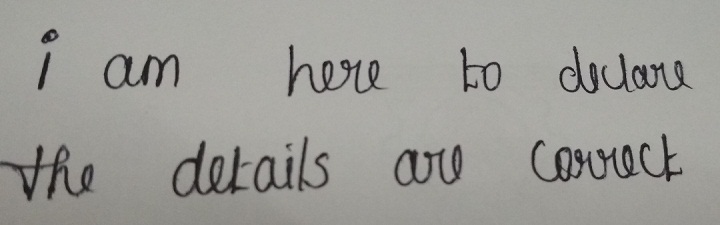 i am here to declare
the details are correct